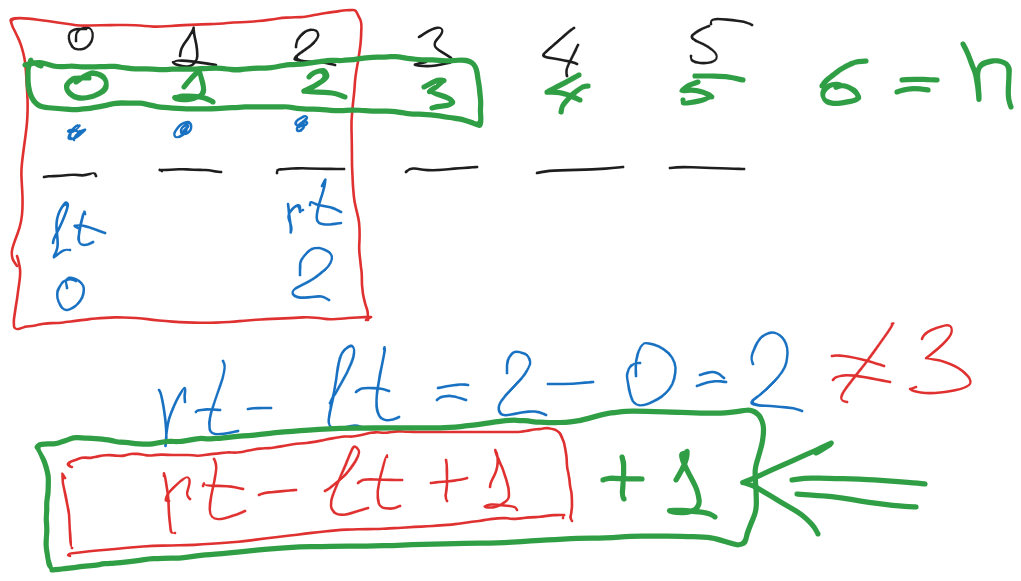 0 1 2 3 4 5
0 1 2 3 4 5 6 = n
lt rt
0 2
rt - lt = 2 - 0 = 2 ≠ 3
rt - lt + 1 + 1